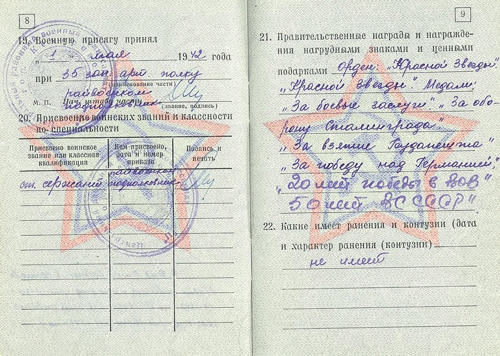 8
19. Военную присягу принял
„ 1 " мая 1942 года
при 35 зап. арт. полку
наименование части
райвоенком
М. П. Нач. штаба части
подполковник
(звание, подпись)
20. Присвоение воинских званий и классности
по специальности
Присвоено воинское
звание или классная
квалификация
Кем присвоено,
дата и номер
приказа
Подпись и
печать
райвоенком
ст. сержант подполковник
9
21. Правительственные награда и награжде-
ния нагрудными знаками и ценными
подарками Орден: „Красной Звезды"
„Красной Звезды". Медали:
„За боевые заслуги". „За обо-
рону Сталинграда".
„За взятие Кенигсберга"
„За победу над Германией",
"20 лет победы в ВОВ"
50 лет ВС СССР"
22. Какие имеет ранения и контузии (дата
и характер ранения (контузии)
не имеет